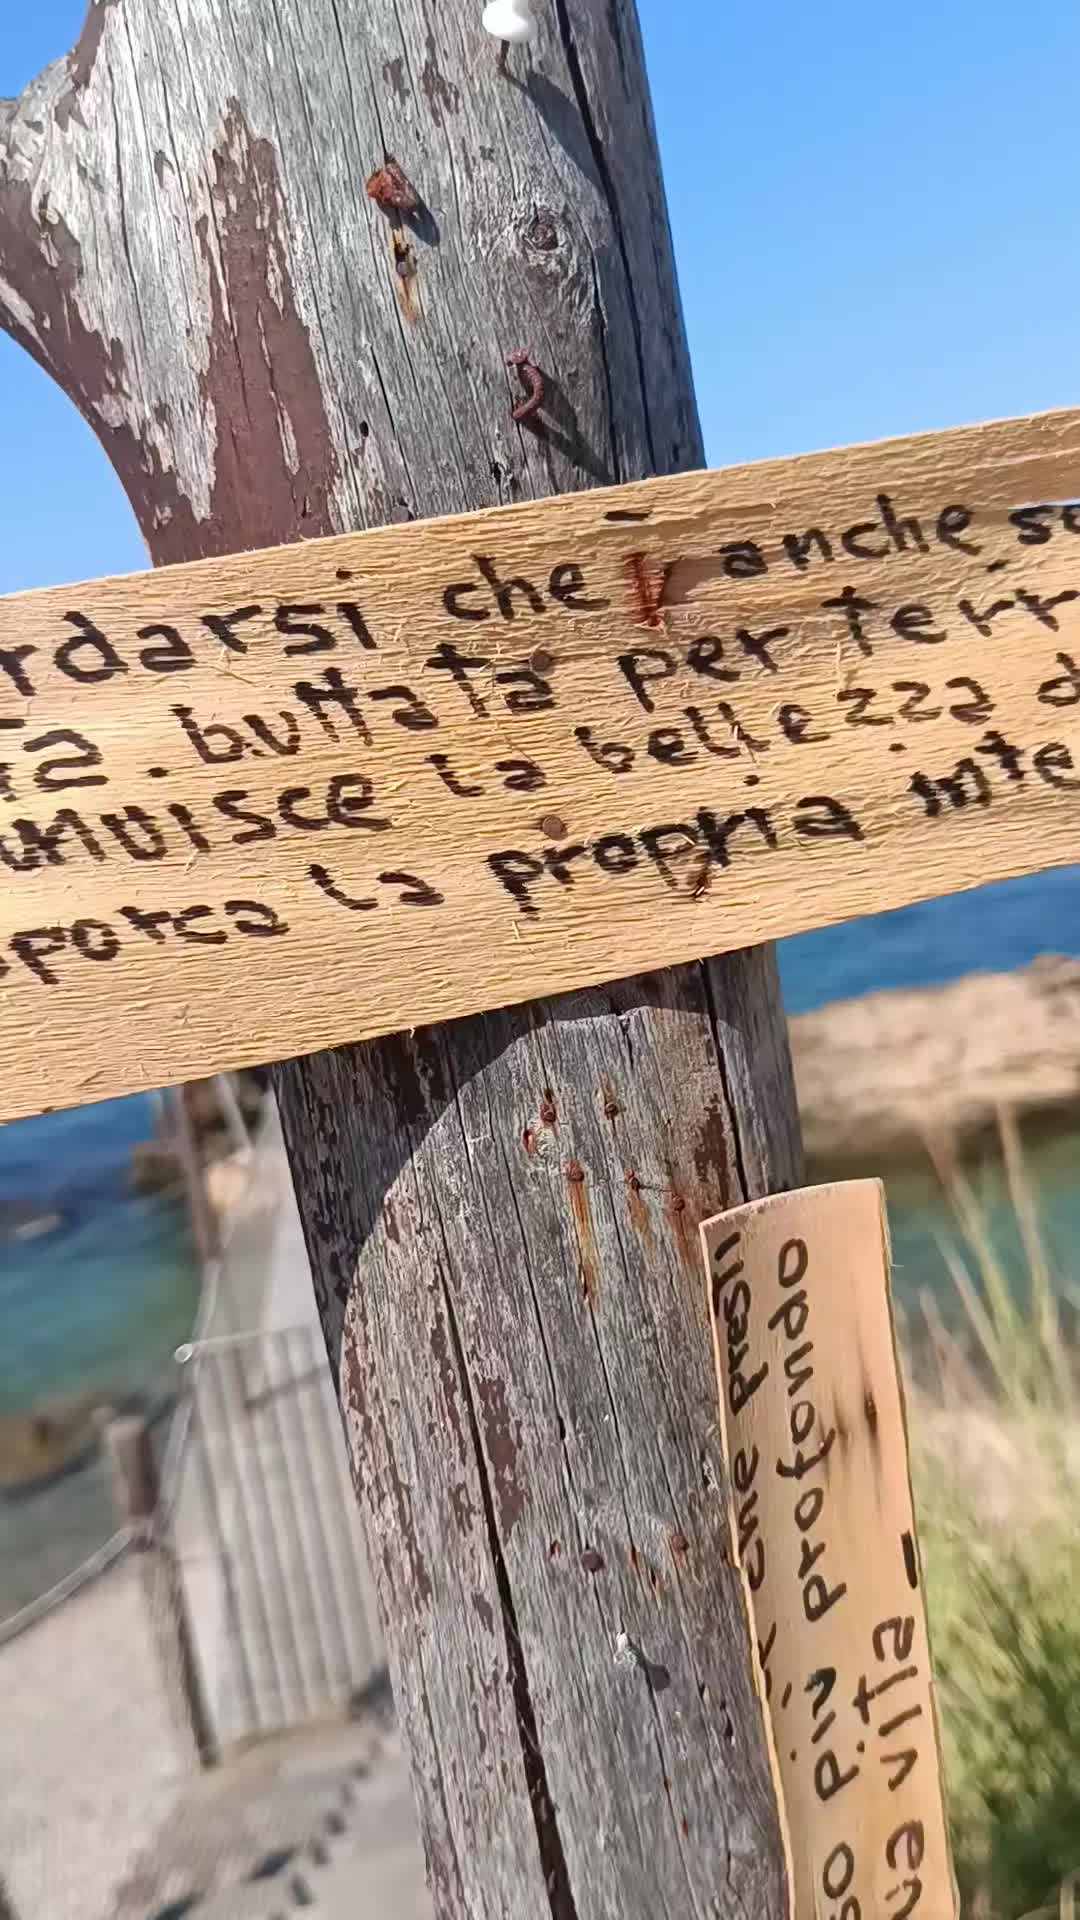 rdarsi che anche so
ta buttata per terr
inuisce la bellezza d
sporca la propria inte
che pesti
so più profondo
en vita